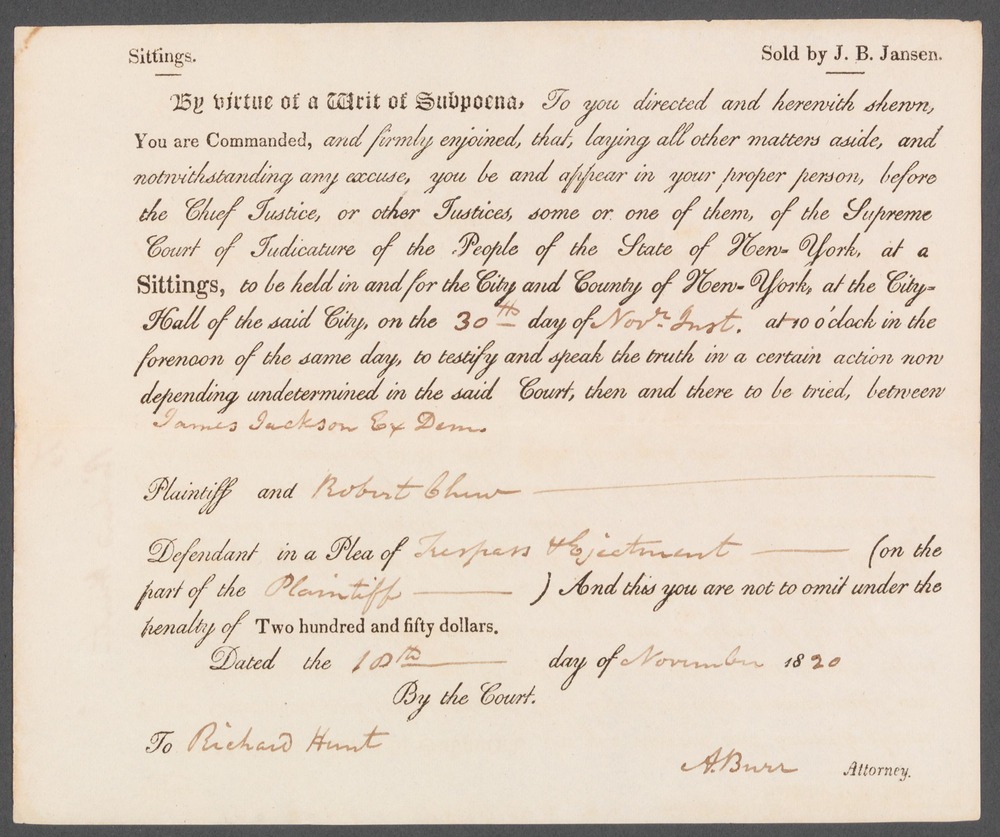 Sittings.
Sold by J. B. Jansen.
By virtue of a Writ of Subpoena, To you directed and herewith shewn,
You are Commanded, and firmly enjoined, that, laying all other matters aside, and
notwithstanding any excuse, you be and appear in your proper person, before
the Chief Justice, or other Justices, some or one of them, of the Supreme
Court of Judicature of the People of the State of New-York, at a
Sittings, to be held in and for the City and County of New-York, at the City-
Hall of the said City, on the 30th day of Novr. Inst. at 10 o'clock in the
forenoon of the same day, to testify and speak the truth in a certain action now
depending undetermined in the said Court, then and there to be tried, between
James Jackson Ex Dem.
Plaintiff and Robert Chew
Defendant in a Plea of Trespass & Ejectment (on the
part of the Plaintiff ) And this you are not to omit under the
penalty of Two hundred and fifty dollars.
Dated the 18th day of November 1820
By the Court.
To Richard Hunt
A. Burr Attorney.